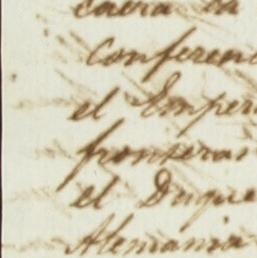 caera la
conferenc
el Emper
fronteras
el Duque
Alemania